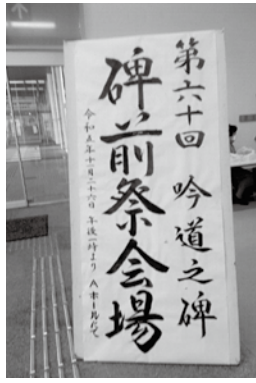 第六十回 吟道之碑
碑前祭会場
令和五年十一月二十六日 午後一時より Aホールにて